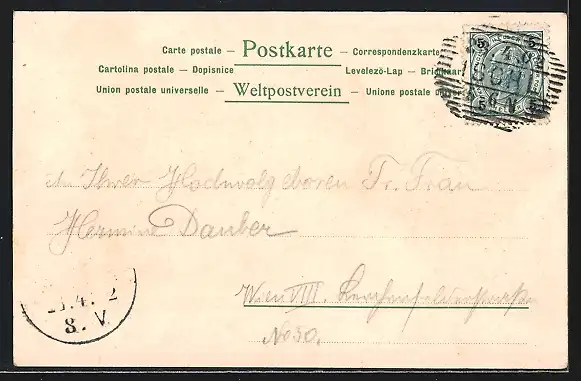 Carte postale — Postkarte — Correspondenzkarte
Cartolina postale — Dopisnice Levelező-Lap —
Union postale universelle — Weltpostverein — Unione postale
5 5
ISCHL
5
Ihrer Hochwolgeboren Fr. Frau
Hermine Dauber
Wien VIII. Lerchenfelderstrasse
No 50.
.4. 2
8. V